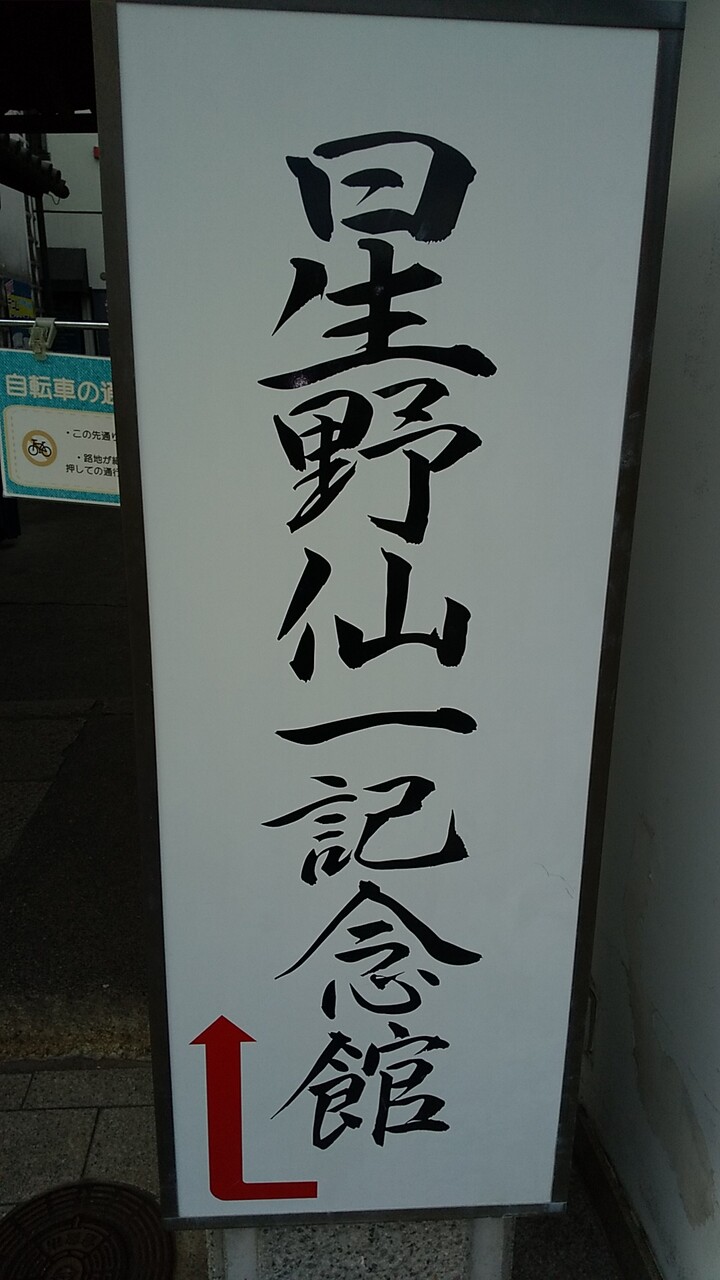 星野仙一記念館
自転車の通
・この先通り
・路地が
押しての通行